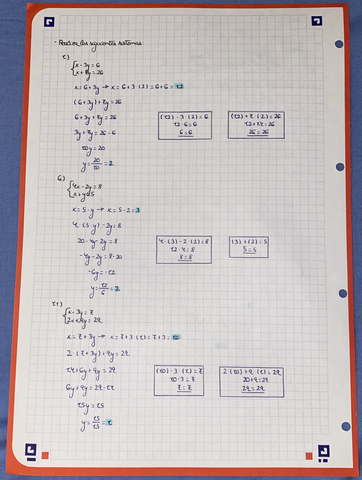 - Resolver los siguientes sistemas:
5)
{x - 3y = 6
{x + 7y = 26
x = 6 + 3y → x = 6 + 3·(2) = 6 + 6 = 12
(6 + 3y) + 7y = 26
6 + 3y + 7y = 26
3y + 7y = 26 - 6
10y = 20
y = 20/10 = 2
(12) - 3·(2) = 6
12 - 6 = 6
6 = 6
(12) + 7·(2) = 26
12 + 14 = 26
26 = 26
6)
{4x - 2y = 8
{x + y = 5
x = 5 - y → x = 5 - 2 = 3
4·(5 - y) - 2y = 8
20 - 4y - 2y = 8
- 4y - 2y = 8 - 20
- 6y = - 12
y = 12/6 = 2
4·(3) - 2·(2) = 8
12 - 4 = 8
8 = 8
(3) + (2) = 5
5 = 5
11)
{x - 3y = 7
{2x + 9y = 29
x = 7 + 3y → x = 7 + 3·(1) = 7 + 3 = 10
2·(7 + 3y) + 9y = 29
14 + 6y + 9y = 29
6y + 9y = 29 - 14
15y = 15
y = 15/15 = 1
(10) - 3·(1) = 7
10 - 3 = 7
7 = 7
2·(10) + 9·(1) = 29
20 + 9 = 29
29 = 29